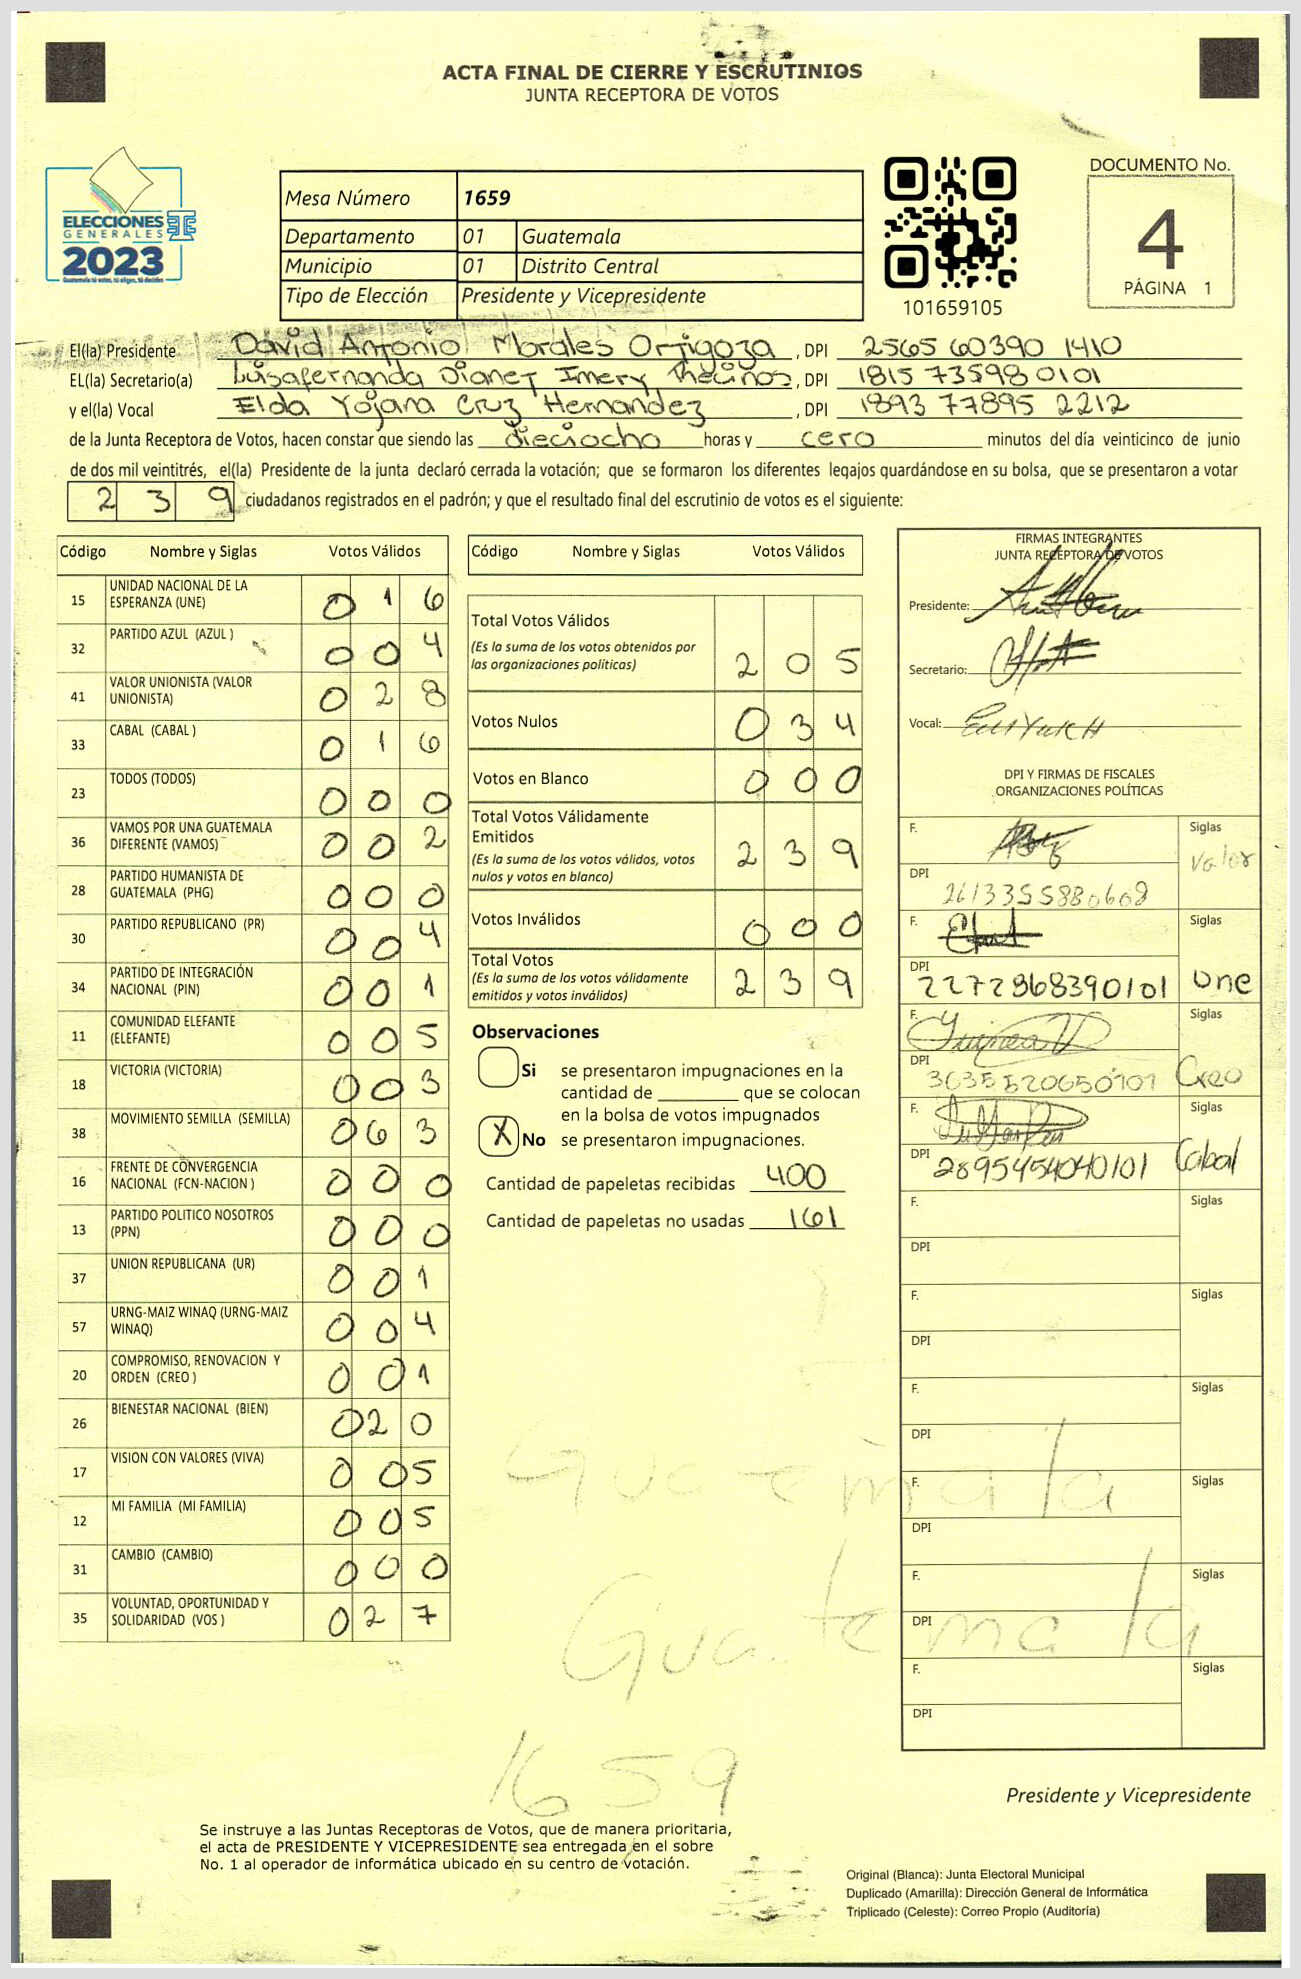 ACTA FINAL DE CIERRE Y ESCRUTINIOS
JUNTA RECEPTORA DE VOTOS
ELECCIONES
GENERALES
2023
Mesa Número 1659
Departamento 01 Guatemala
Municipio 01 Distrito Central
Tipo de Elección Presidente y Vicepresidente
101659105
DOCUMENTO No.
4
PÁGINA 1
El(la) Presidente David Antonio Morales Ortigoza, DPI 2565 60390 1410
EL(la) Secretario(a) Luisafernanda Dianet Imery Thecinos, DPI 1815 73598 0101
y el(la) Vocal Elda Yojana Cruz Hernandez, DPI 1893 77895 2212
de la Junta Receptora de Votos, hacen constar que siendo las dieciocho horas y cero minutos del día veinticinco de junio
de dos mil veintitrés, el(la) Presidente de la junta declaró cerrada la votación; que se formaron los diferentes legajos guardándose en su bolsa, que se presentaron a votar
239 ciudadanos registrados en el padrón; y que el resultado final del escrutinio de votos es el siguiente:
Código Nombre y Siglas Votos Válidos
15 UNIDAD NACIONAL DE LA ESPERANZA (UNE) 016
32 PARTIDO AZUL (AZUL ) 004
41 VALOR UNIONISTA (VALOR UNIONISTA) 028
33 CABAL (CABAL ) 016
23 TODOS (TODOS) 000
36 VAMOS POR UNA GUATEMALA DIFERENTE (VAMOS) 002
28 PARTIDO HUMANISTA DE GUATEMALA (PHG) 000
30 PARTIDO REPUBLICANO (PR) 004
34 PARTIDO DE INTEGRACIÓN NACIONAL (PIN) 001
11 COMUNIDAD ELEFANTE (ELEFANTE) 005
18 VICTORIA (VICTORIA) 003
38 MOVIMIENTO SEMILLA (SEMILLA) 063
16 FRENTE DE CONVERGENCIA NACIONAL (FCN-NACION ) 000
13 PARTIDO POLITICO NOSOTROS (PPN) 000
37 UNION REPUBLICANA (UR) 001
57 URNG-MAIZ WINAQ (URNG-MAIZ WINAQ) 004
20 COMPROMISO, RENOVACION Y ORDEN (CREO ) 001
26 BIENESTAR NACIONAL (BIEN) 020
17 VISION CON VALORES (VIVA) 005
12 MI FAMILIA (MI FAMILIA) 005
31 CAMBIO (CAMBIO) 000
35 VOLUNTAD, OPORTUNIDAD Y SOLIDARIDAD (VOS ) 027
Código Nombre y Siglas Votos Válidos
Total Votos Válidos
(Es la suma de los votos obtenidos por
las organizaciones políticas) 205
Votos Nulos 034
Votos en Blanco 000
Total Votos Válidamente
Emitidos
(Es la suma de los votos válidos, votos
nulos y votos en blanco) 239
Votos Inválidos 000
Total Votos
(Es la suma de los votos válidamente
emitidos y votos inválidos) 239
Observaciones
Si se presentaron impugnaciones en la
cantidad de ________ que se colocan
en la bolsa de votos impugnados
X No se presentaron impugnaciones.
Cantidad de papeletas recibidas 400
Cantidad de papeletas no usadas 161
FIRMAS INTEGRANTES
JUNTA RECEPTORA DE VOTOS
Presidente:
Secretario:
Vocal:
DPI Y FIRMAS DE FISCALES
ORGANIZACIONES POLÍTICAS
F. Siglas
Valor
DPI 2613355880608
F. Siglas
DPI 2272868390101 Une
F. Siglas
DPI 3035520650101 Creo
F. Siglas
DPI 2895454040101 Cabal
F. Siglas
DPI
F. Siglas
DPI
F. Siglas
DPI
F. Siglas
DPI
F. Siglas
DPI
F. Siglas
DPI
Guatemala
Guatemala
1659
Presidente y Vicepresidente
Se instruye a las Juntas Receptoras de Votos, que de manera prioritaria,
el acta de PRESIDENTE Y VICEPRESIDENTE sea entregada en el sobre
No. 1 al operador de informática ubicado en su centro de votación.
Original (Blanca): Junta Electoral Municipal
Duplicado (Amarilla): Dirección General de Informática
Triplicado (Celeste): Correo Propio (Auditoría)